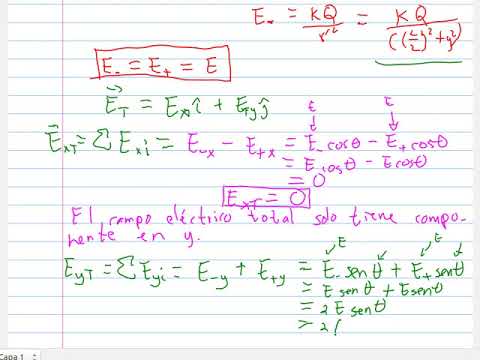 E₋ = KQ/r² = KQ/((L/2)²+y²)
E₋ = E₊ = E
E⃗_T = E_x î + E_Ty ĵ
E E
E⃗_xT = ∑E_xi = E₋x − E₊x = E₋cosθ − E₊cosθ
= E cosθ − E cosθ
= 0
E_xT = 0
El campo eléctrico total solo tiene compo-
nente en y.
E E
E_yT = ∑E_yi = E₋y + E₊y = E₋senθ + E₊senθ
= E senθ + E senθ
= 2 E senθ
= 2
Capa 1